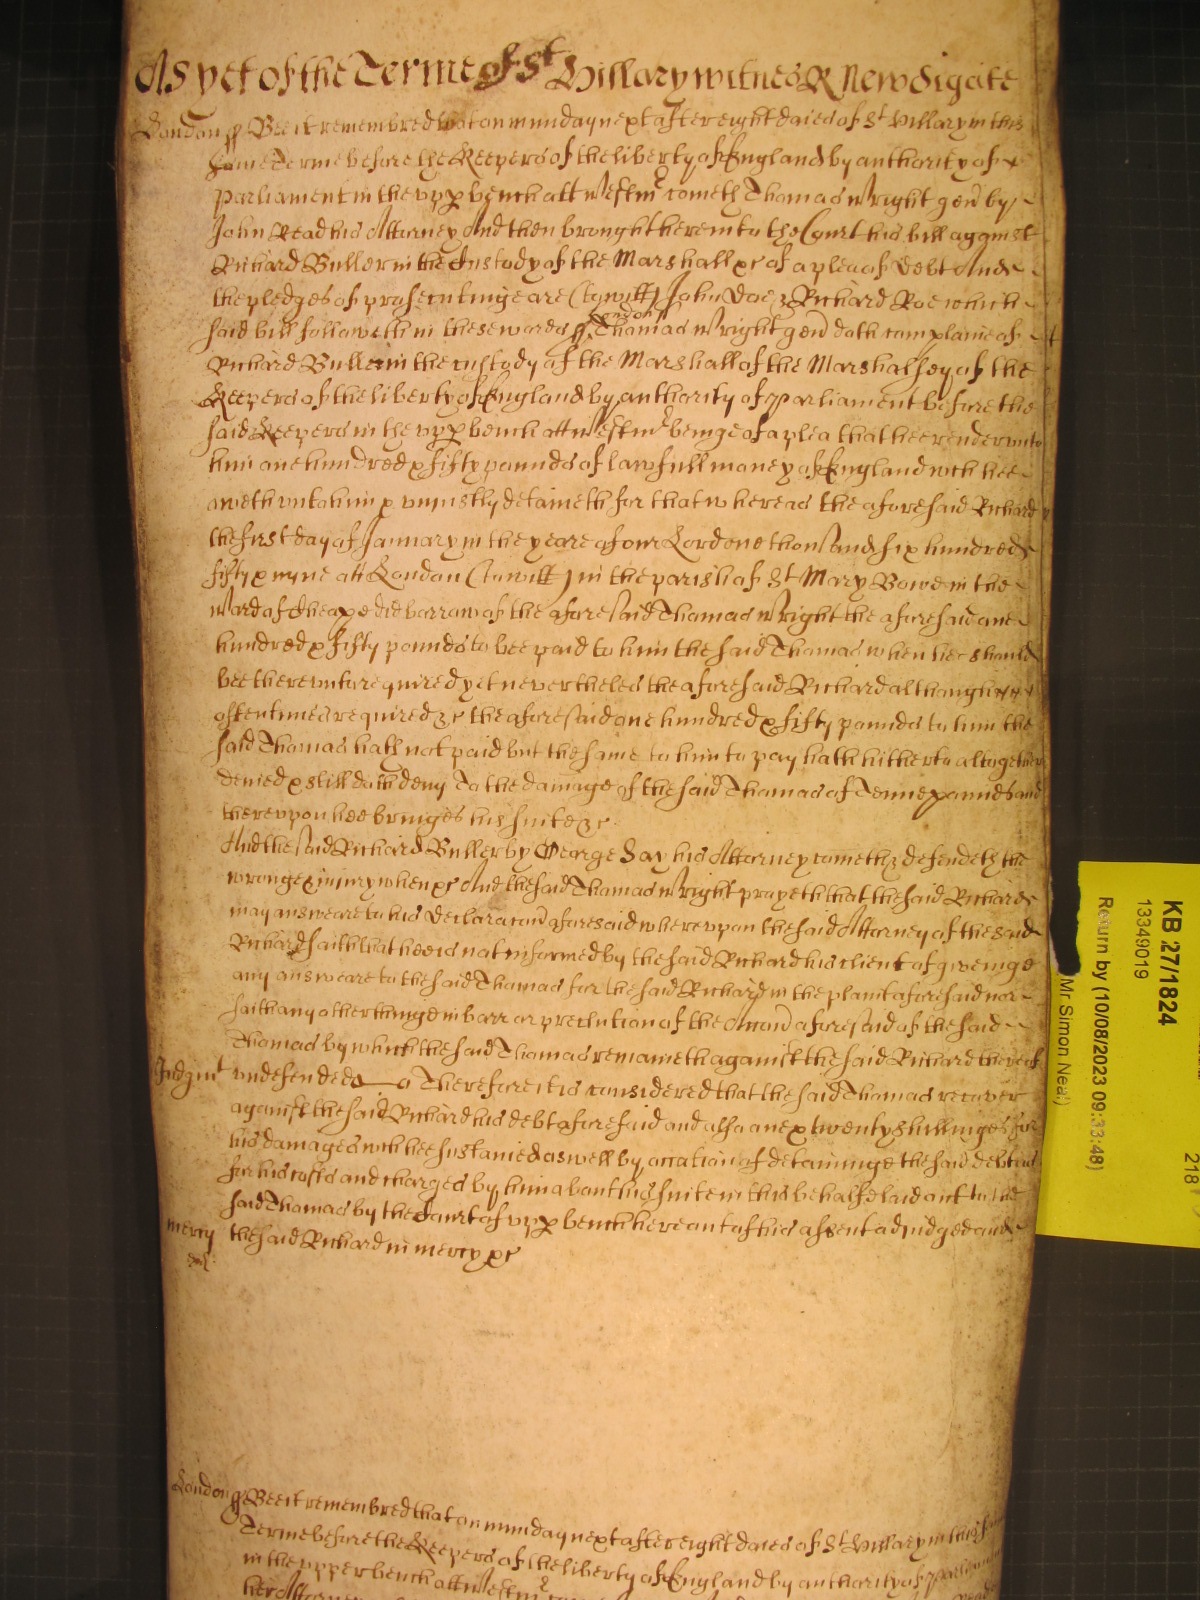 As yet of the Terme of St Hillary witnes R Newdigate
London ss Bee it remembred that on munday next after eight daies of St Hillary in this
same Terme before the Keepers of the liberty of England by authority of
Parliament in the upp bench att Westmr cometh Thomas Wright gen by
John Read his Attorney And then brought here into the Court his bill against
Richard Buller in the Custody of the Marshall &c of a plea of Debt And
the pledges of prosecutinge are (to witt) John Doe & Richard Roe which
said bill followeth in these words ss London Thomas Wright gen doth complaine of
Richard Buller in the custody of the Marshall of the Marshalsey of the
Keepers of the liberty of England by authority of Parliament before the
said Keepers in the upp bench att Westmr beinge of a plea that hee render unto
him one hundred & fifty pounds of lawfull money of England wch hee
oweth unto him & unjustly detaineth for that whereas the aforesaid Richard
the first day of January in the yeare of our Lord one thousand six hundred
fifty & nyne att London (to witt) in the parish of St Mary Bowe in the
Ward of Cheape did borrow of the aforesaid Thomas Wright the aforesaid one
hundred & fifty pounds to bee paid to him the said Thomas when hee should
bee thereunto required yet nevertheles the aforesaid Richard although
oftentimes required &c the aforesaid one hundred & fifty pounds to him the
said Thomas hath not paid but the same to him to pay hath hitherto altogether
denied & still doth deny To the damage of the said Thomas of Tenne pounds and
thereupon hee bringes his suite &c
And the said Richard Buller by George Day his Attorney cometh & defendeth the
wronge & injury when &c And the said Thomas Wright prayeth that the said Richard
may answeare to his Declaracon aforesaid whereupon the said Attorney of the said
Richard saith that hee is not informed by the said Richard his client of giveinge
any answeare to the said Thomas for the said Richard in the plaint aforesaid nor
saith any other thinge in barr or preclution of the Accon aforesaid of the said
Thomas by which the said Thomas remaineth against the said Richard thereof
Judgmt undefended Therefore it is considered that the said Thomas recover
against the said Richard his debt aforesaid and also one & twenty shillinges for
his damages wch hee sustained as well by occation of detaininge the said debt as
for his costs and charges by him about his suite in this behalfe laid out to the
said Thomas by the Court of upp bench here out of his assent adjudged and
mercy the said Richard in mercy &c
London ss Bee it remembred that on munday next after eight daies of St Hillary in this
Terme before the Keepers of the liberty of England by authority of parliament
in the upper bench att Westmr
her Attorney
KB 27/1824
13349019
Return by (10/08/2023 09:33:48)
Mr Simon Neal)
218